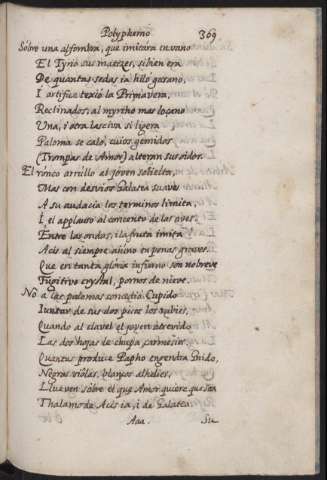 Polyphemo 369
Sobre una alfombra, que imitara en vano
El Tyrio sus matizes, si bien era
De quantas sedas ia hiló gusano,
I artifice texió la Primavera,
Reclinados, al myrtho mas loçano
Una, i otra lasciva si ligera
Paloma se caló, cuios gemidos
(Trompas de Amor) alteran sus oidos.
El ronco arrullo al joven solicita,
Mas con desvios Galatea suaves
A su audacia los terminos limita,
I el applauso al concento de las aves.
Entre las ondas, i la fruta imita
Acis al siempre aiuno en penas graves,
Que en tanta gloria infierno son no breve
Fugitivo crystal, pomos de nieve.
No a las palomas concedió Cupido
Iuntar de sus dos picos los rubies,
Quando al clavel el joven atrevido
Las dos hojas le chupa carmesies.
Quantas produce Papho, engendra Gnido,
Negras violas, blancos alhelies,
Llueven sobre el que Amor quiere que sea
Thalamo de Acis ia, i de Galatea.
Aaa Su